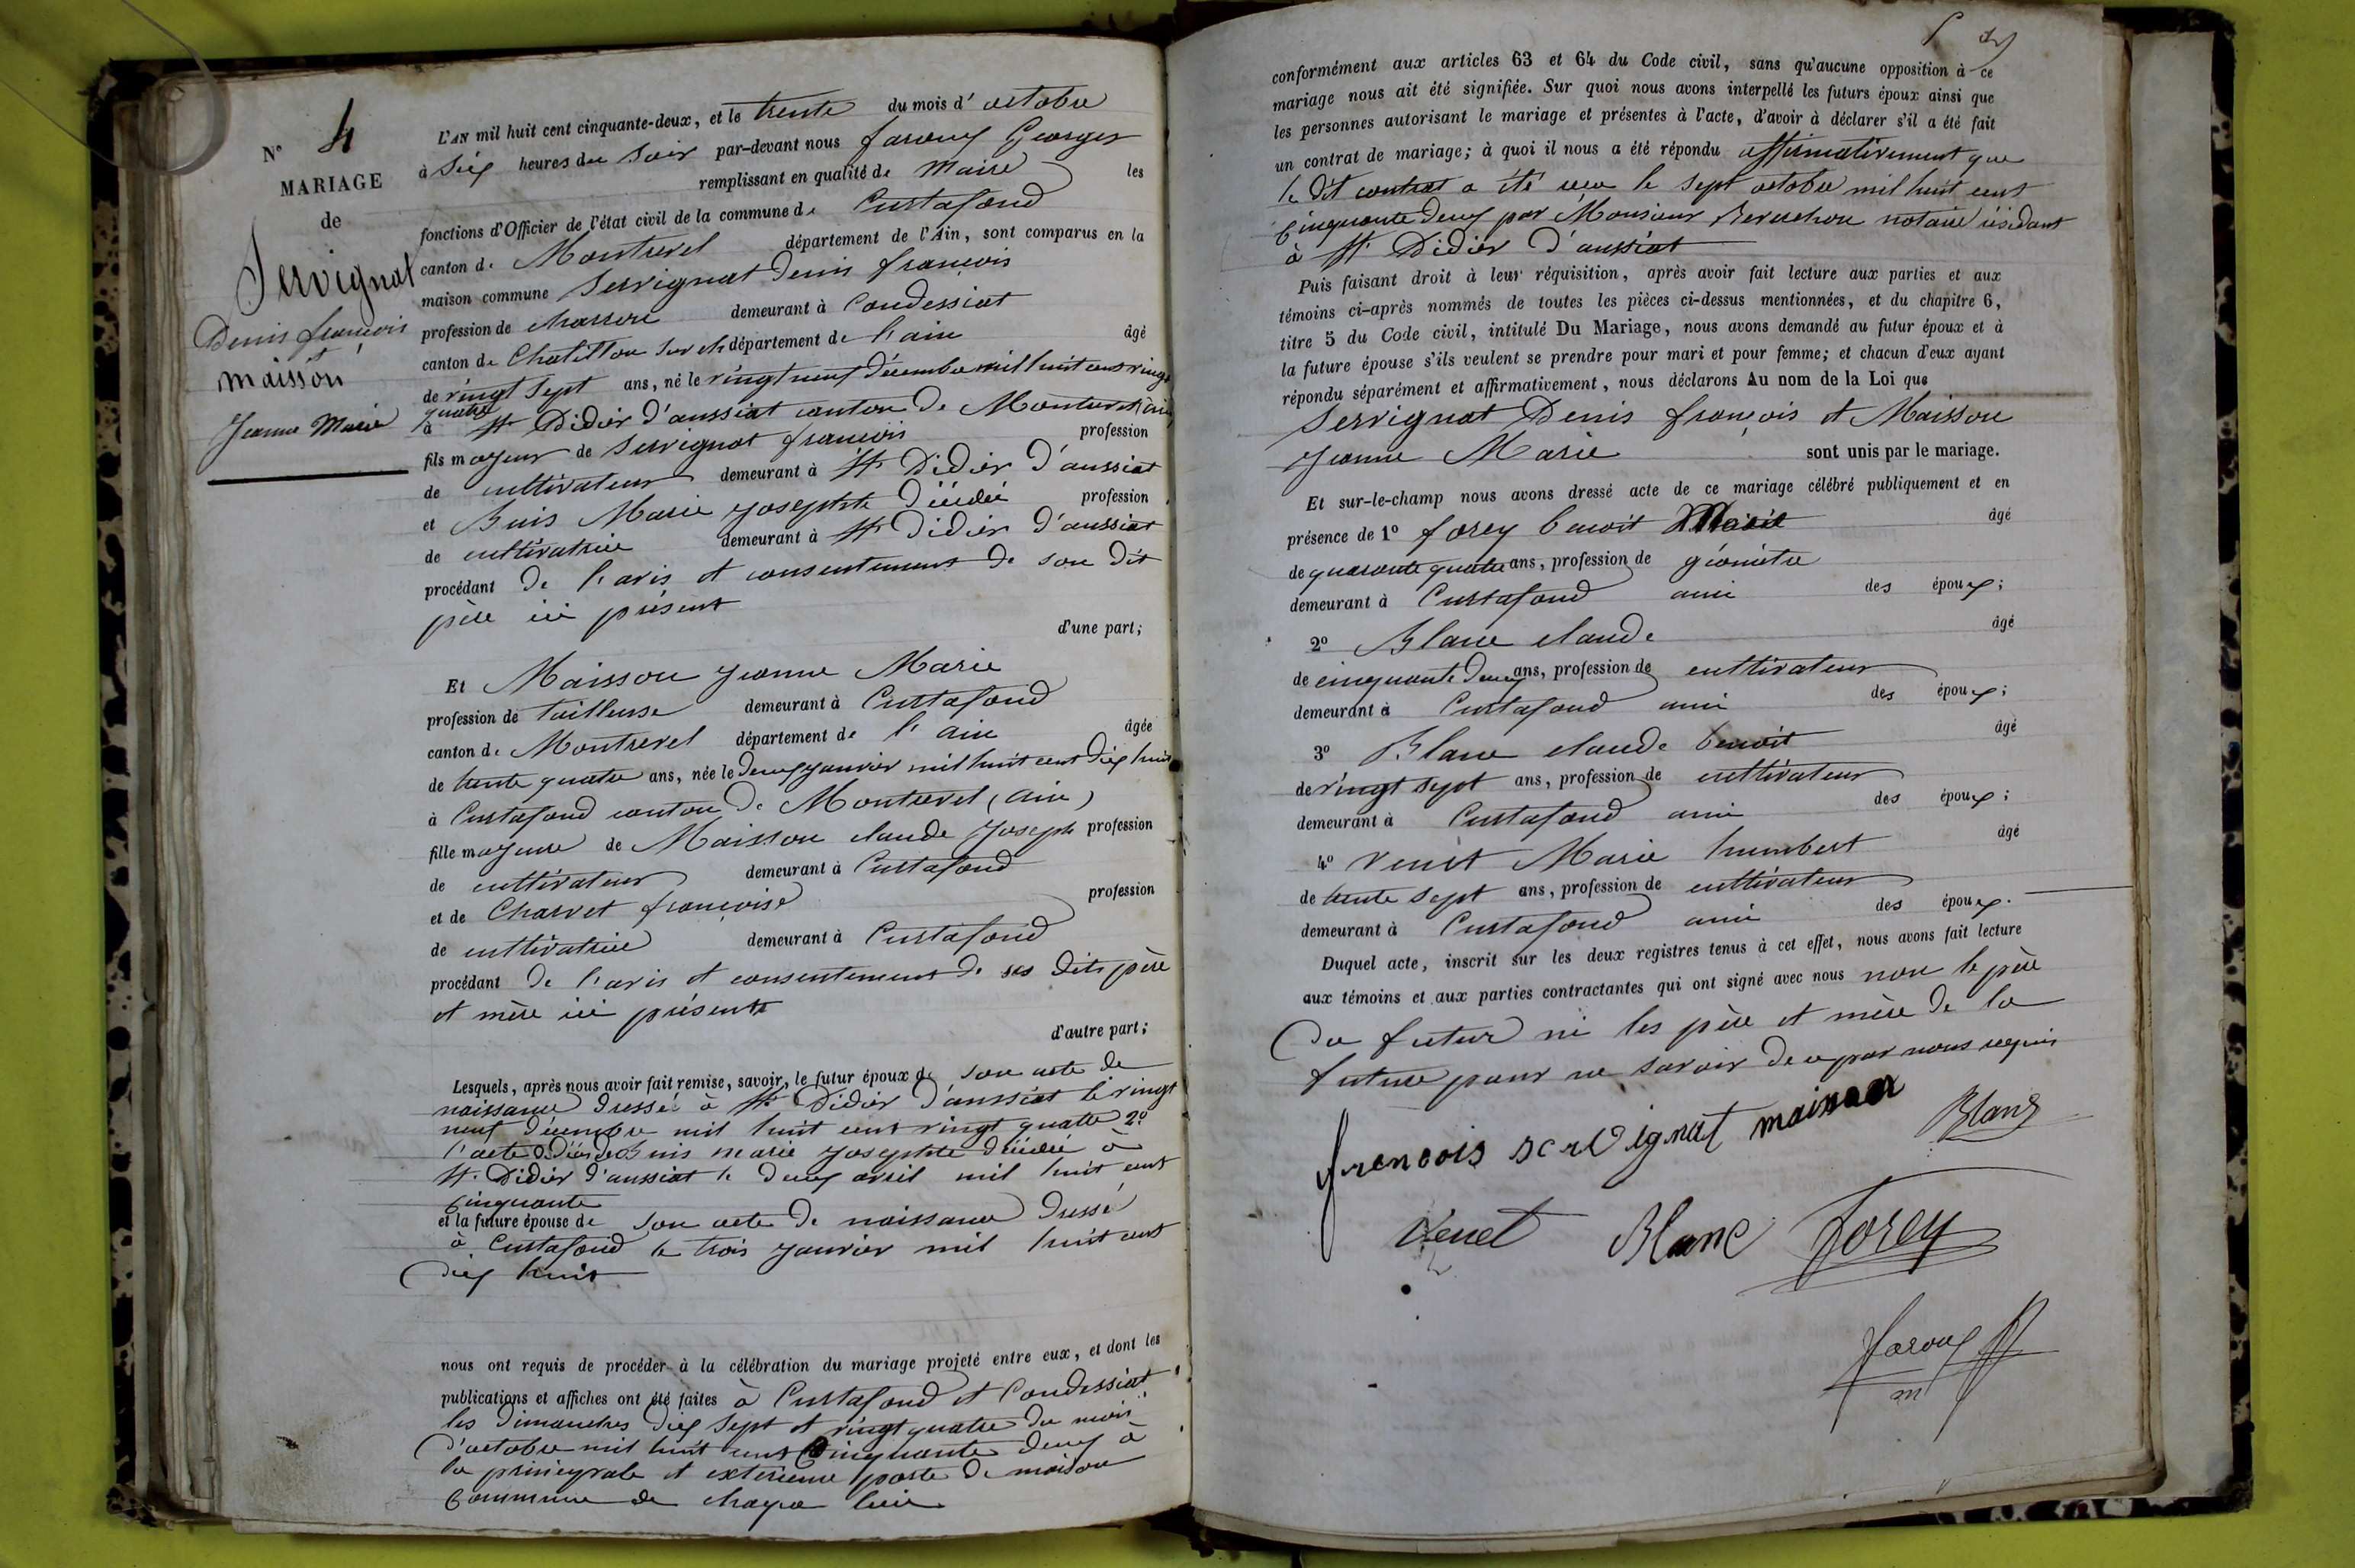 N° 4
MARIAGE
de
Servignat
Denis françois
et
maisson
Jeanne Marie
L'AN mil huit cent cinquante-deux, et le trente du mois d' octobre
à Six heures du Soir par-devant nous faroux Georges
remplissant en qualité de Maire les
fonctions d'Officier de l'état civil de la commune de Curtafond
canton de Montrevel département de l'Ain, sont comparus en la
maison commune Servignat Denis françois
profession de charron demeurant à Condessiat
canton de Chatillon sur ch département de l'ain âgé
de vingt sept ans, né le vingt neuf décembre mil huit cent vingt
quatre
à St Didier d'aussiat canton de Montrevel (ain)
fils majeur de Servignat françois profession
de cultivateur demeurant à St Didier d'aussiat
et Buis Marie Josephte décédée profession
de cultivatrice demeurant à St Didier d'aussiat
procédant de l'avis et consentement de son dit
père ici présent
d'une part;
Et Maisson Jeanne Marie
profession de tailleuse demeurant à Curtafond
canton de Montrevel département de l'ain âgée
de trente quatre ans, née le deux janvier mil huit cent dix huit
à Curtafond canton de Montrevel (ain)
fille majeure de Maisson claude Joseph profession
de cultivateur demeurant à Curtafond
et de Charvet françoise profession
de cultivatrice demeurant à Curtafond
procédant de l'avis et consentement de ses dits père
et mère ici présents
d'autre part;
Lesquels, après nous avoir fait remise, savoir, le futur époux de son acte de
naissance dressé à St Didier d'aussiat le vingt
neuf décembre mil huit cent vingt quatre 2°
l'acte de décès de Buis marie Josephte décédée à
St Didier d'aussiat le deux avril mil huit cent
cinquante
et la future épouse de son acte de naissance dressé
à Curtafond le trois janvier mil huit cent
dix huit
nous ont requis de procéder à la célébration du mariage projeté entre eux, et dont les
publications et affiches ont été faites à Curtafond et Condessiat
les dimanches dix sept et vingt quatre du mois
d'octobre mil huit cent cinquante deux à
la principale et extérieure porte de maison
commune de chaque lieu
conformément aux articles 63 et 64 du Code civil, sans qu'aucune opposition à ce
mariage nous ait été signifiée. Sur quoi nous avons interpellé les futurs époux ainsi que
les personnes autorisant le mariage et présentes à l'acte, d'avoir à déclarer s'il a été fait
un contrat de mariage; à quoi il nous a été répondu affirmativement que
le dit contrat a été reçu le sept octobre mil huit cent
cinquante deux par Monsieur notaire résidant
à St Didier d'aussiat
Puis faisant droit à leur réquisition, après avoir fait lecture aux parties et aux
témoins ci-après nommés de toutes les pièces ci-dessus mentionnées, et du chapitre 6,
titre 5 du Code civil, intitulé Du Mariage, nous avons demandé au futur époux et à
la future épouse s'ils veulent se prendre pour mari et pour femme; et chacun d'eux ayant
répondu séparément et affirmativement, nous déclarons Au nom de la Loi que
Servignat Denis françois et Maisson
Jeanne Marie sont unis par le mariage.
Et sur-le-champ nous avons dressé acte de ce mariage célébré publiquement et en
présence de 1° forey benoit âgé
de quarante quatre ans, profession de géomètre
demeurant à Curtafond ami des époux;
2° Blanc claude âgé
de cinquante deux ans, profession de cultivateur
demeurant à Curtafond ami des époux;
3° Blanc claude benoit âgé
de vingt sept ans, profession de cultivateur
demeurant à Curtafond ami des époux;
4° venet Marie humbert âgé
de trente sept ans, profession de cultivateur
demeurant à Curtafond ami des époux.
Duquel acte, inscrit sur les deux registres tenus à cet effet, nous avons fait lecture
aux témoins et aux parties contractantes qui ont signé avec nous non le père
du futur ni les père et mère de la
future pour ne savoir de ce par nous requis
francois servignat maisson Blanc
Venet Blanc Forey
faroux
m